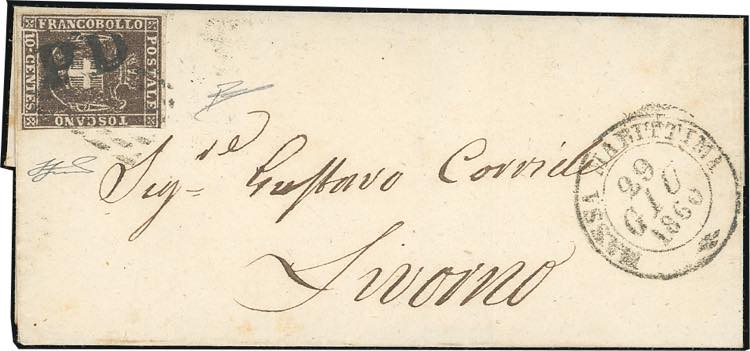 FRANCOBOLLO
POSTALE
TOSCANO
10 CENTES
PD
Sig.re Gustavo
Livorno
MASSA MARITTIMA
29
GIU
1860